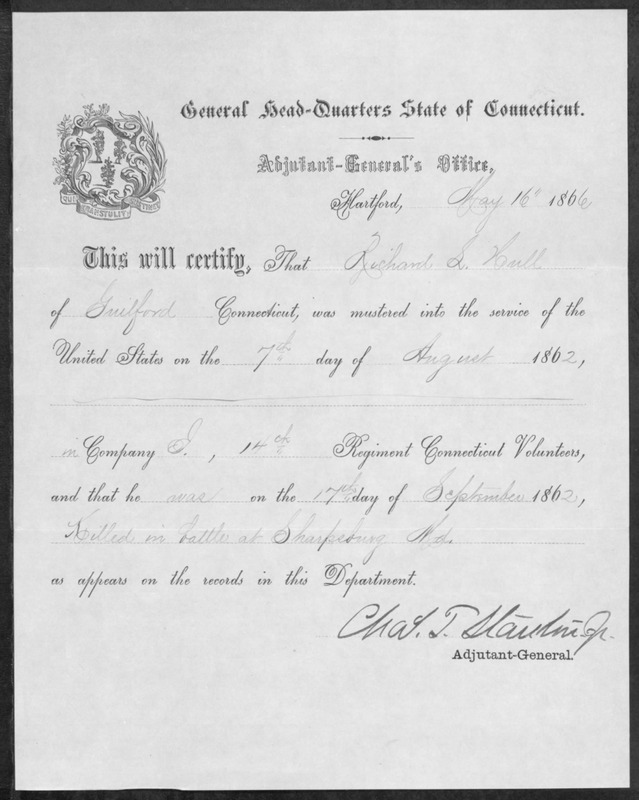 General Head-Quarters State of Connecticut.
Adjutant-General's Office,
Hartford, May 16" 1866
QUI TRANSTULIT SUSTINET
This will certify, That Richard L. Hull
of Guilford Connecticut, was mustered into the service of the
United States on the 7th day of August 1862,
in Company I., 14th Regiment Connecticut Volunteers,
and that he was on the 17th day of September 1862,
Killed in battle at Sharpsburg Md.
as appears on the records in this Department.
Chas. T. Stanton Jr.
Adjutant-General.